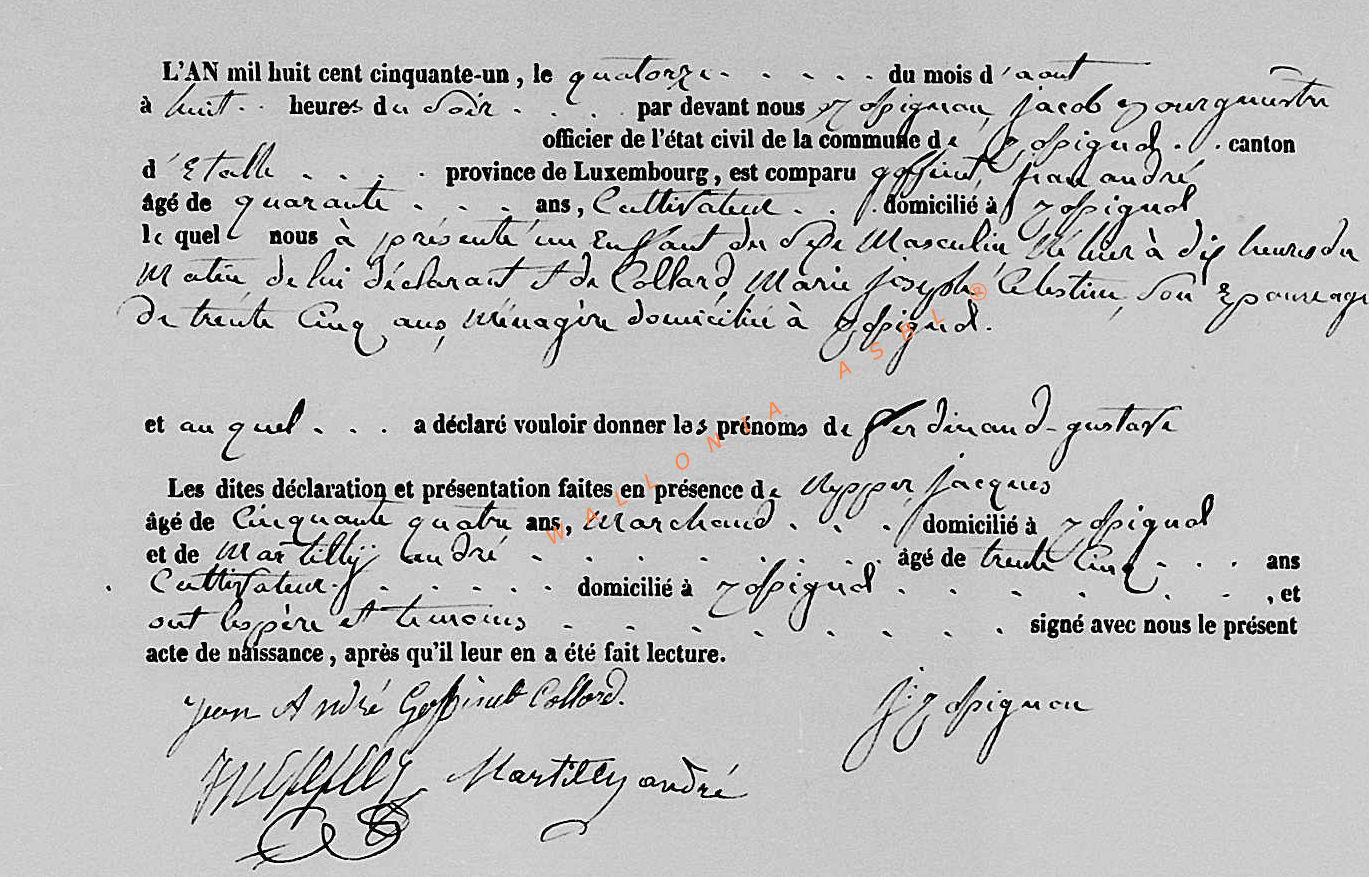 L'AN mil huit cent cinquante-un, le quatorze . . . . . du mois d'aout
à huit . . heures du Soir . . . . par devant nous Rossignon, Jacob Bourguestre
officier de l'état civil de la commune de Rossignol . . canton
d'Etalle . . . . province de Luxembourg, est comparu Goffinet, jean andré
âgé de quarante . . . ans, Cultivateur . . . domicilié à Rossignol
le quel nous à présenté un Enfant du Sexe Masculin Né hier à dix heures du
Matin de lui déclarant & de Collard Marie joseph Célestine, Son Epouse age
De trente Cinq ans, Ménagère domiciliée à Rossignol.
et au quel . . . a déclaré vouloir donner les prénoms de Ferdinand-gustave
Les dites déclaration et présentation faites en présence de Jacques
âgé de Cinquante quatre ans, Marchand . . . domicilié à Rossignol
et de Martilly andré . . . . . . . . . âgé de trente Cinq . . . ans
Cultivateurs . . . . . domicilié à Rossignol . . . . . . . , et
ont les père et temoins . . . . . . . . signé avec nous le présent
acte de naissance, après qu'il leur en a été fait lecture.
Jean André Goffinet Collard.
J. Rossignon
Martilly andré
WALLONIA ASBL ®